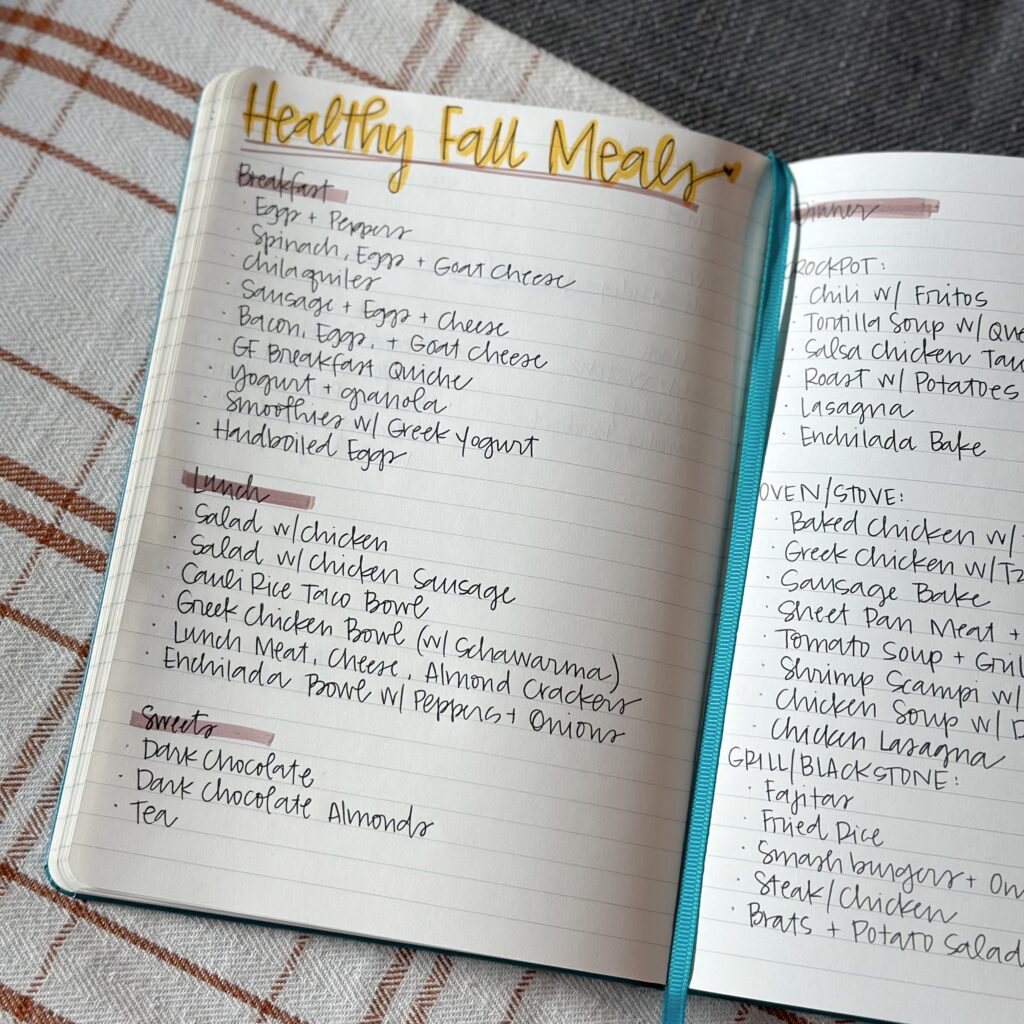 Healthy Fall Meals
Breakfast
· Eggs + Peppers
· Spinach, Eggs + Goat Cheese
· Chilaquiles
· Sausage + Eggs + Cheese
· Bacon, Eggs, + Goat Cheese
· GF Breakfast Quiche
· Yogurt + granola
· Smoothies w/ Greek Yogurt
· Hardboiled Eggs
Lunch
· Salad w/Chicken
· Salad w/ Chicken Sausage
· Cauli Rice Taco Bowl
· Greek Chicken Bowl (w/ Schawarma)
· Lunch Meat, Cheese, Almond Crackers
· Enchilada Bowl w/ Peppers + Onions
Sweets
· Dark Chocolate
· Dark Chocolate Almonds
· Tea
Dinner
ROCKPOT:
· Chili w/ Fritos
· Tortilla Soup w/
· Salsa Chicken
· Roast w/ Potatoes
· Lasagna
· Enchilada Bake
OVEN/STOVE:
· Baked Chicken w/
· Greek Chicken w/
· Sausage Bake
· Sheet Pan Meat +
· Tomato Soup +
· Shrimp Scampi w/
· Chicken Soup w/
· Chicken Lasagna
GRILL/BLACKSTONE:
· Fajitas
· Fried Rice
· Smashburgers +
· Steak/Chicken
· Brats + Potato Salad